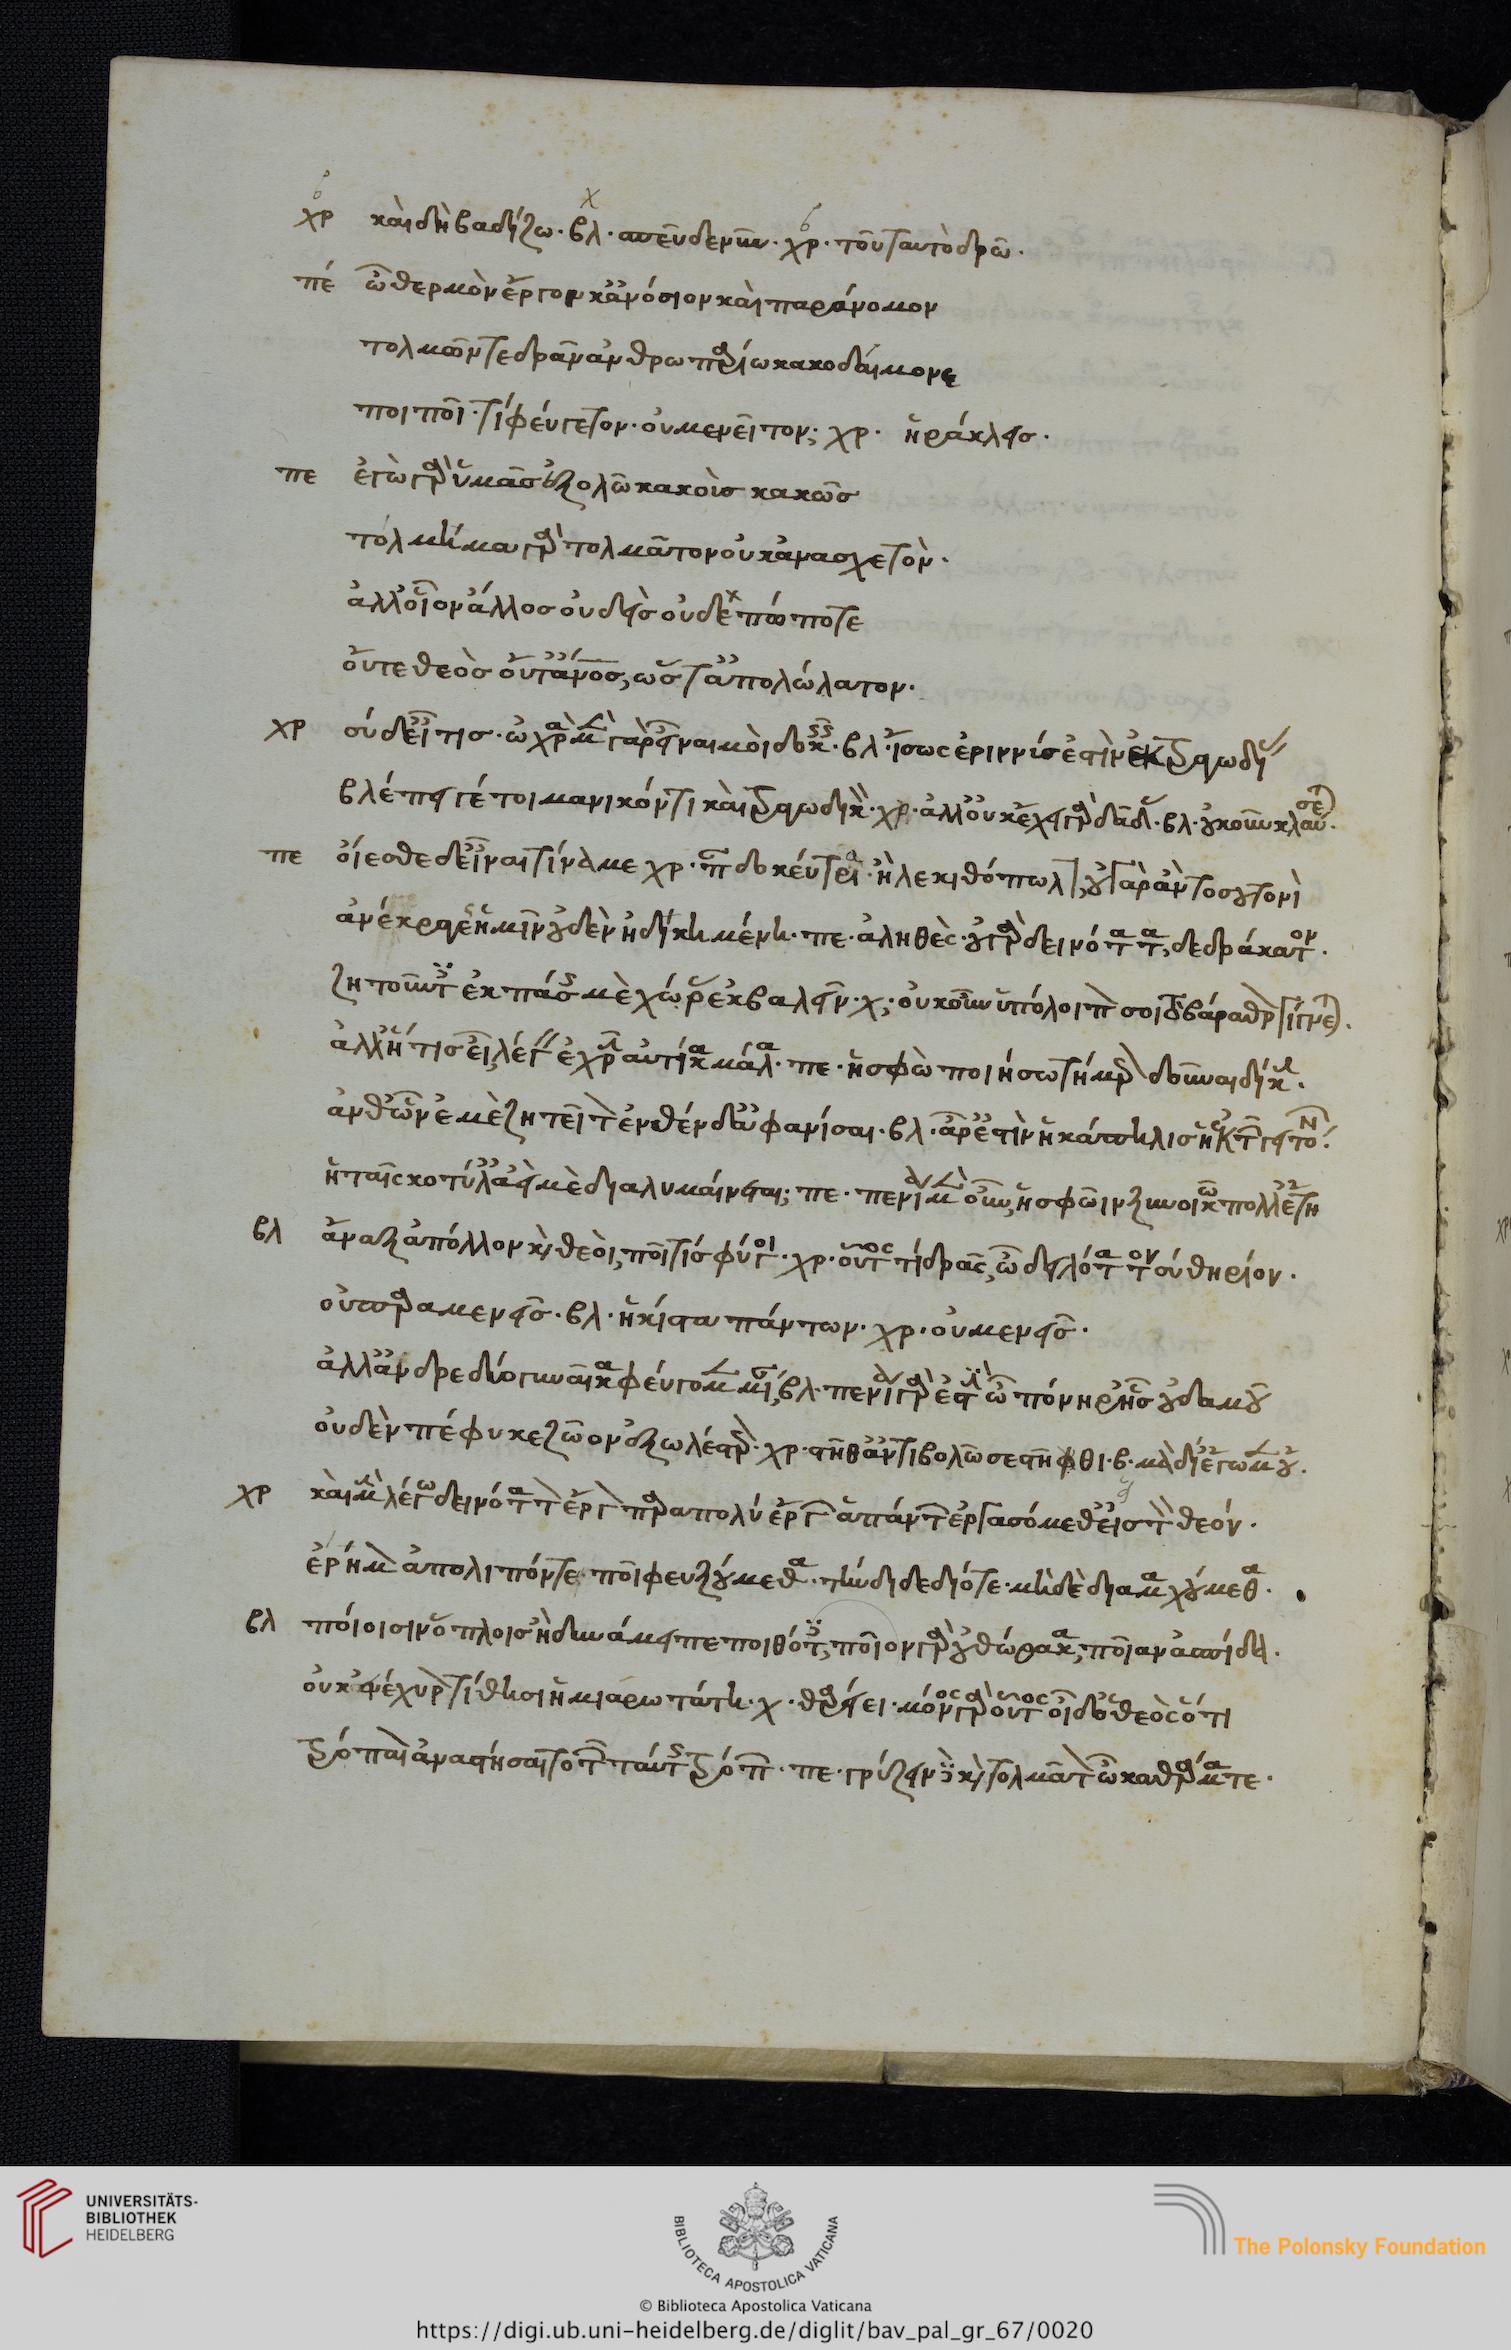 χρ καὶ δὴ βαδίζω. βλ. σπεῦδε νῦν. χρ. τοῦτ' αὐτὸ δρῶ.
πέ ὦ θερμὸν ἔργον κἀνόσιον καὶ παράνομον
τολμῶντε δρᾶν ἀνθρωπαρίω κακοδαίμονε
ποῖ ποῖ. τί φεύγετον. οὐ μενεῖτον; χρ. ἡράκλεις.
πε ἐγὼ γὰρ ὑμᾶς ἐξολῶ κακοὺς κακῶς
τόλμημα γὰρ τολμᾶτον οὐκ ἀνασχετόν.
ἀλλ' οἷον ἄλλος οὐδεὶς οὐδὲ πώποτε
οὔτε θεὸς οὔτ' ἄνος, ὥστ' ἀπολώλατον.
χρ σὺ δ' εἶ τίς. ὠχρὰ μὲν γὰρ εἶναι μοὶ δοκεῖς. βλ. ἴσως ἐριννύς ἐστὶν ἐκ τραγωδίας
βλέπει γέ τοι μανικόν τι καὶ τραγωδικόν. χρ. ἀλλ' οὐκ ἔχει γὰρ δᾶδας. βλ. οὐκοῦν κλαύσεται.
πε οἴεσθε δ' εἶναι τίνα με χρ. πανδοκεύτριαν. ἢ λεκιθόπωλιν, οὐ γὰρ ἂν τοσουτονὶ
ἀνέκραγες ἡμῖν οὐδὲν ἠδικημένη. πε. ἀληθὲς. οὐ γὰρ δεινότατα, δεδράκατον.
ζητοῦντες ἐκ πάσης μὲ χώρας ἐκβαλεῖν. χ; οὐκοῦν ὑπόλοιπὸν σοι τὸ βάραθρον γίγνεται.
ἀλλ' ἥτις εἶ, λέγειν ἐχρῆν αὐτίκα μάλα. πε. ἣ σφὼ ποιήσω τήμερον δοῦναι δίκην.
ἀνθ' ὧν ἐμὲ ζητεῖτον ἐνθένδ' ἀφανίσαι. βλ. ἆρ' ἐστὶν ἡ κάπηλις ἡ 'κ τῶν γειτόνων
ἣ ταῖς κοτύλαις ἀεὶ μὲ διαλυμαίνεται; πε. πενία μὲν οὖν, ἣ σφῶιν ξυνοικῶ πόλλ' ἔτη
βλ ἄναξ ἀπόλλον καὶ θεοὶ, ποῖ τίς φύγοι. χρ. οὗτος τί δρᾶς, ὦ δειλότατον σὺ θηρίον.
οὐ παραμενεῖς. βλ. ἥκιστα πάντων. χρ. οὐ μενεῖς.
ἀλλ' ἄνδρε δύο γυναῖκα φεύγομεν μίαν, βλ. πενία γὰρ ἐστὶν ὦ πόνηρ' ἧς οὐδαμοῦ
οὐδὲν πέφυκε ζῶον ἐξωλέστερον. χρ. στῆθ' ἀντιβολῶ σε στῆθι. β. μὰ δί' ἔγωγε μὲν οὔ.
χρ καὶ μὴν λέγω δεινότατον ἔργον παραπολὺ ἔργων ἁπάντων ἐργασόμεθ' εἰ τὸν θεόν.
ἐρήμον ἀπολιπόντε ποῖ φευξούμεθα. τηνδὶ δεδιότε. μηδὲ διαμαχούμεθα.
βλ ποίοισιν ὅπλοις ἢ δυνάμει πεποιθότες, ποῖον γὰρ οὐ θώρακα, ποῖαν ἀσπίδα.
οὐκ ἐνέχυρον τίθησι ἡ μιαρωτάτη. χ. θάρσει. μόνος γὰρ οὗτος οἶδ' ὁ θεὸς ὅτι
τρόπαιον ἀναστήσαιτο τῶν ταύτης τρόπων. πε. γρύζειν δὲ καὶ τολμᾶτον ὦ καθάρματε.
UNIVERSITÄTS-
BIBLIOTHEK
HEIDELBERG
BIBLIOTECA APOSTOLICA VATICANA
The Polonsky Foundation
© Biblioteca Apostolica Vaticana
https://digi.ub.uni-heidelberg.de/diglit/bav_pal_gr_67/0020